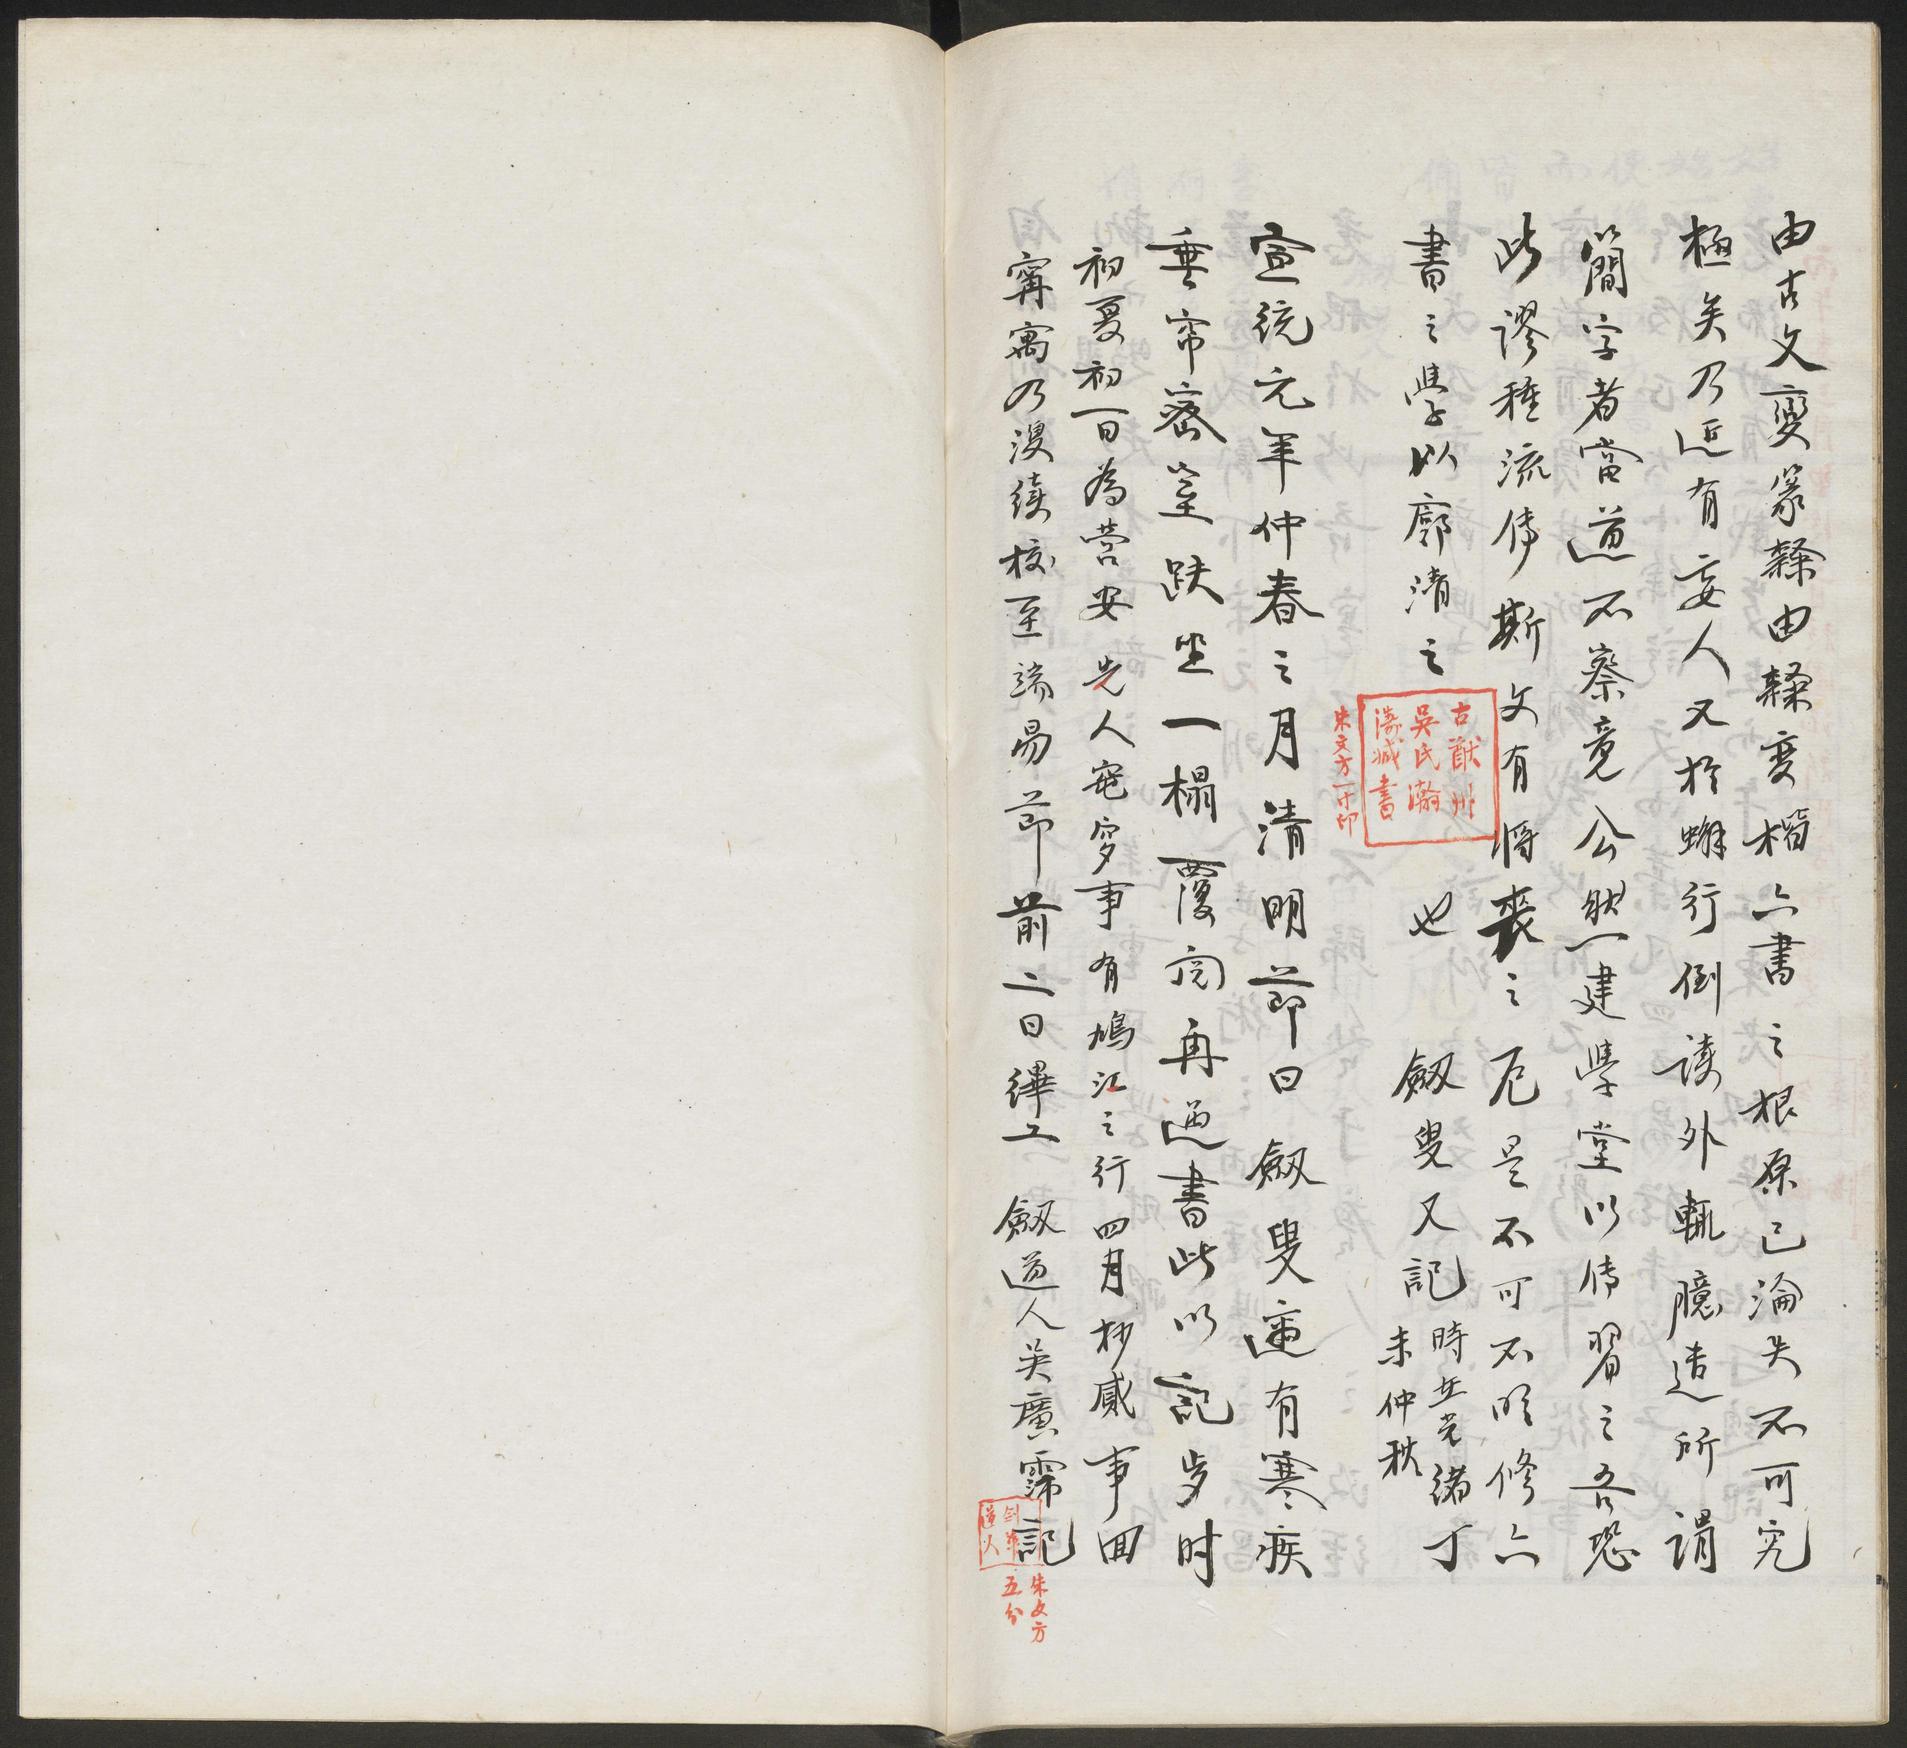 由古文變篆隸由隸變楷六書之根原已淪失不可究
極矣乃近有妄人又於蠏行倒讀外軌臆造所謂
簡字者當道不察竟公然建學堂以傳習之吾恐
此謬種流傳斯文有將喪之厄是不可不明修六
書之學以廓清之也 劔叟又記 時在光緒丁
未仲秋
古猷州
吳氏瀚
濤臧書
朱文方一寸印
宣統元年仲春之月清明節日 劔叟適有寒疾
垂帘密室趺坐一榻覆閱再過書此以記歲时
初夏初一日為營安先人窀穸事有鳩江之行四月抄臧事回
寗寓乃復續校至端昜節前二日繹工 劔道人吳廣霈記
劍華
道人
朱文方
五分